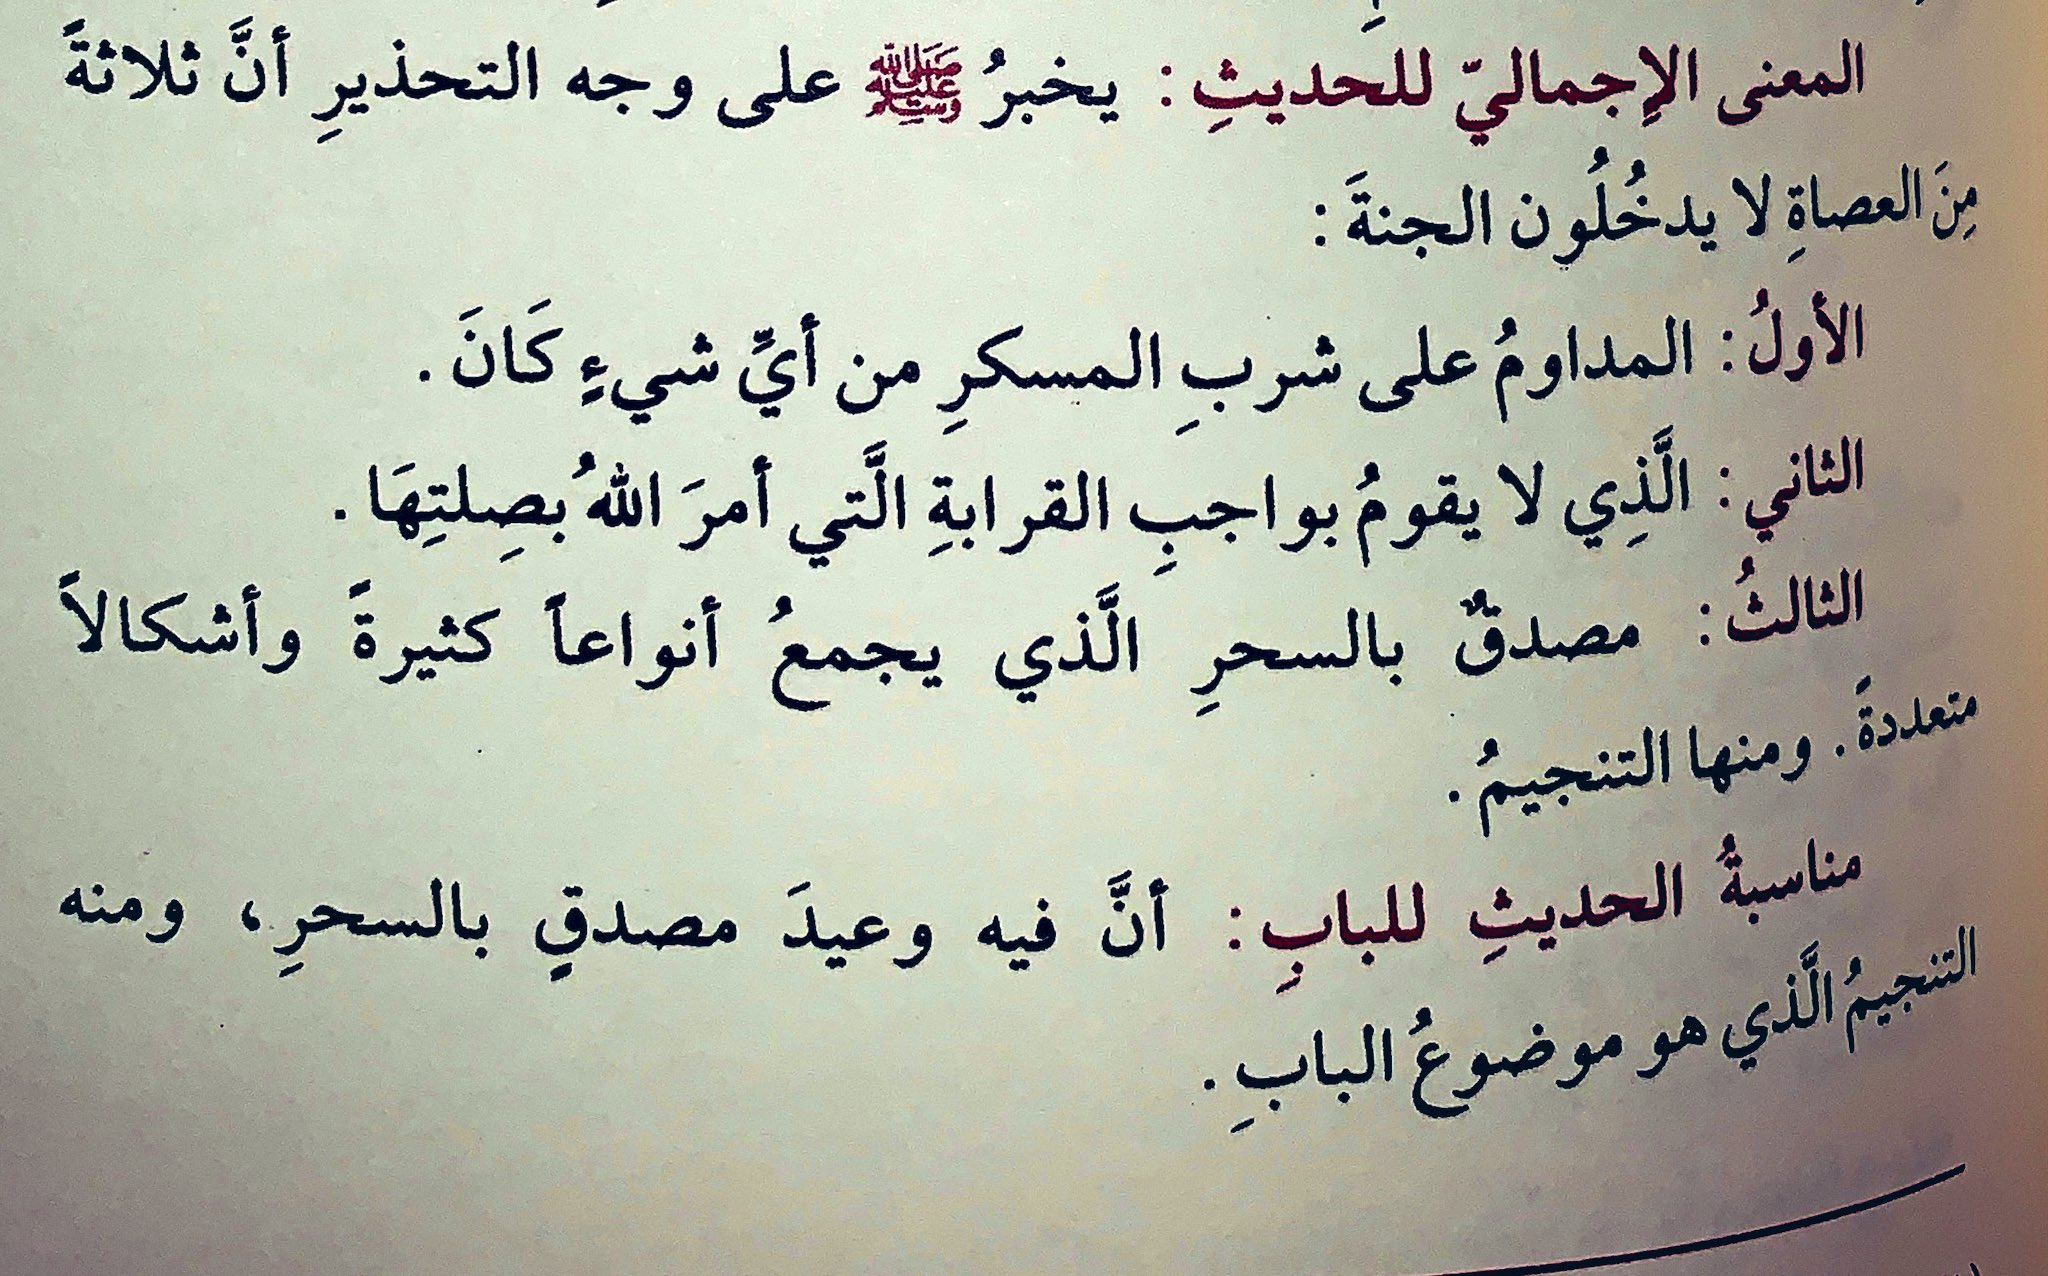 المعنى الإِجماليّ للحديثِ : يخبرُ ﷺ على وجه التحذيرِ أنَّ ثلاثةً
مِنَ العصاةِ لا يدخُلُون الجنةَ :
الأولُ : المداومُ على شربِ المسكرِ من أيِّ شيءٍ كَانَ .
الثاني : الَّذِي لا يقومُ بواجبِ القرابةِ الَّتي أمرَ اللهُ بصِلتِهَا .
الثالثُ : مصدقٌ بالسحرِ الَّذي يجمعُ أنواعاً كثيرةً وأشكالاً
متعددةَ . ومنها التنجيمُ .
مناسبةُ الحديثِ للبابِ : أنَّ فيه وعيدَ مصدقٍ بالسحرِ ، ومنه
التنجيمُ الَّذي هو موضوعُ البابِ .